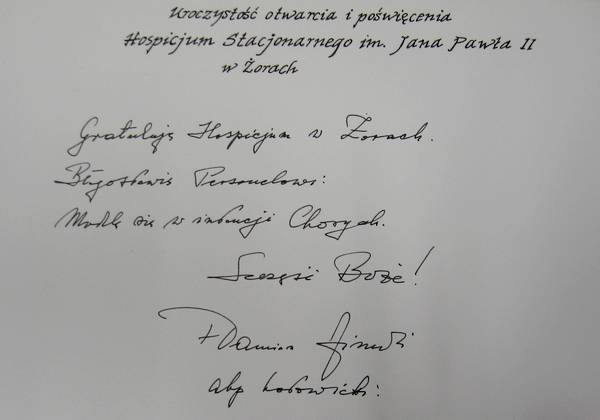 Uroczystość otwarcia i poświęcenia
Hospicjum Stacjonarnego im. Jana Pawła II
w Żorach
Gratuluję Hospicjum w Żorach.
Błogosławię Personelowi.
Modlę się w intencji Chorych.
Szczęść Boże!
+ Damian Zimoń
abp katowicki